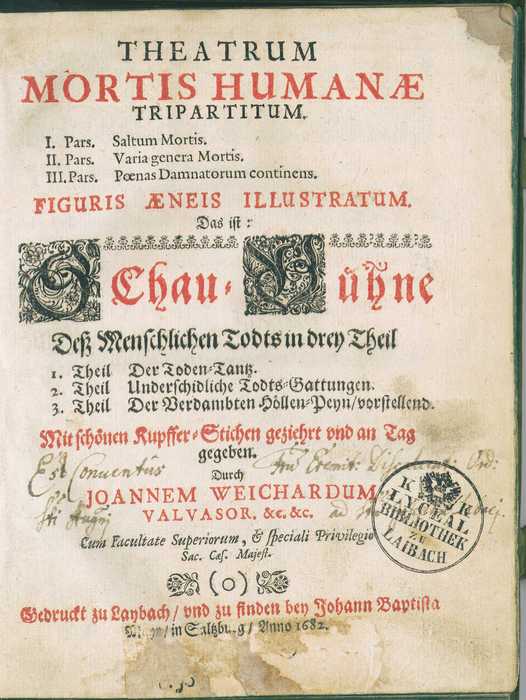 THEATRUM
MORTIS HUMANÆ
TRIPARTITUM.
I. Pars. Saltum Mortis.
II. Pars. Varia genera Mortis.
III. Pars. Pœnas Damnatorum continens.
FIGURIS ÆNEIS ILLUSTRATUM.
Das ist:
SChau-Bühne
Deß Menschlichen Todts in drey Theil
1. Theil Der Toden-Tantz.
2. Theil Underschidliche Todts-Gattungen.
3. Theil Der Verdambten Höllen-Peyn/vorstellend.
Mit schönen Kupffer-Stichen geziehrt vnd an Tag
gegeben.
Est Conventus
Durch
JOANNEM WEICHARDUM
VALVASOR, &c. &c.
Cum Facultate Superiorum, & speciali Privilegio
Sac. Cæs. Majest.
(o)
Gedruckt zu Laybach/ vnd zu finden bey Johann Baptista
Mayr/in Saltzburg/ Anno 1682.
K K
LYCEAL
BIBLIOTHEK
zu
LAIBACH